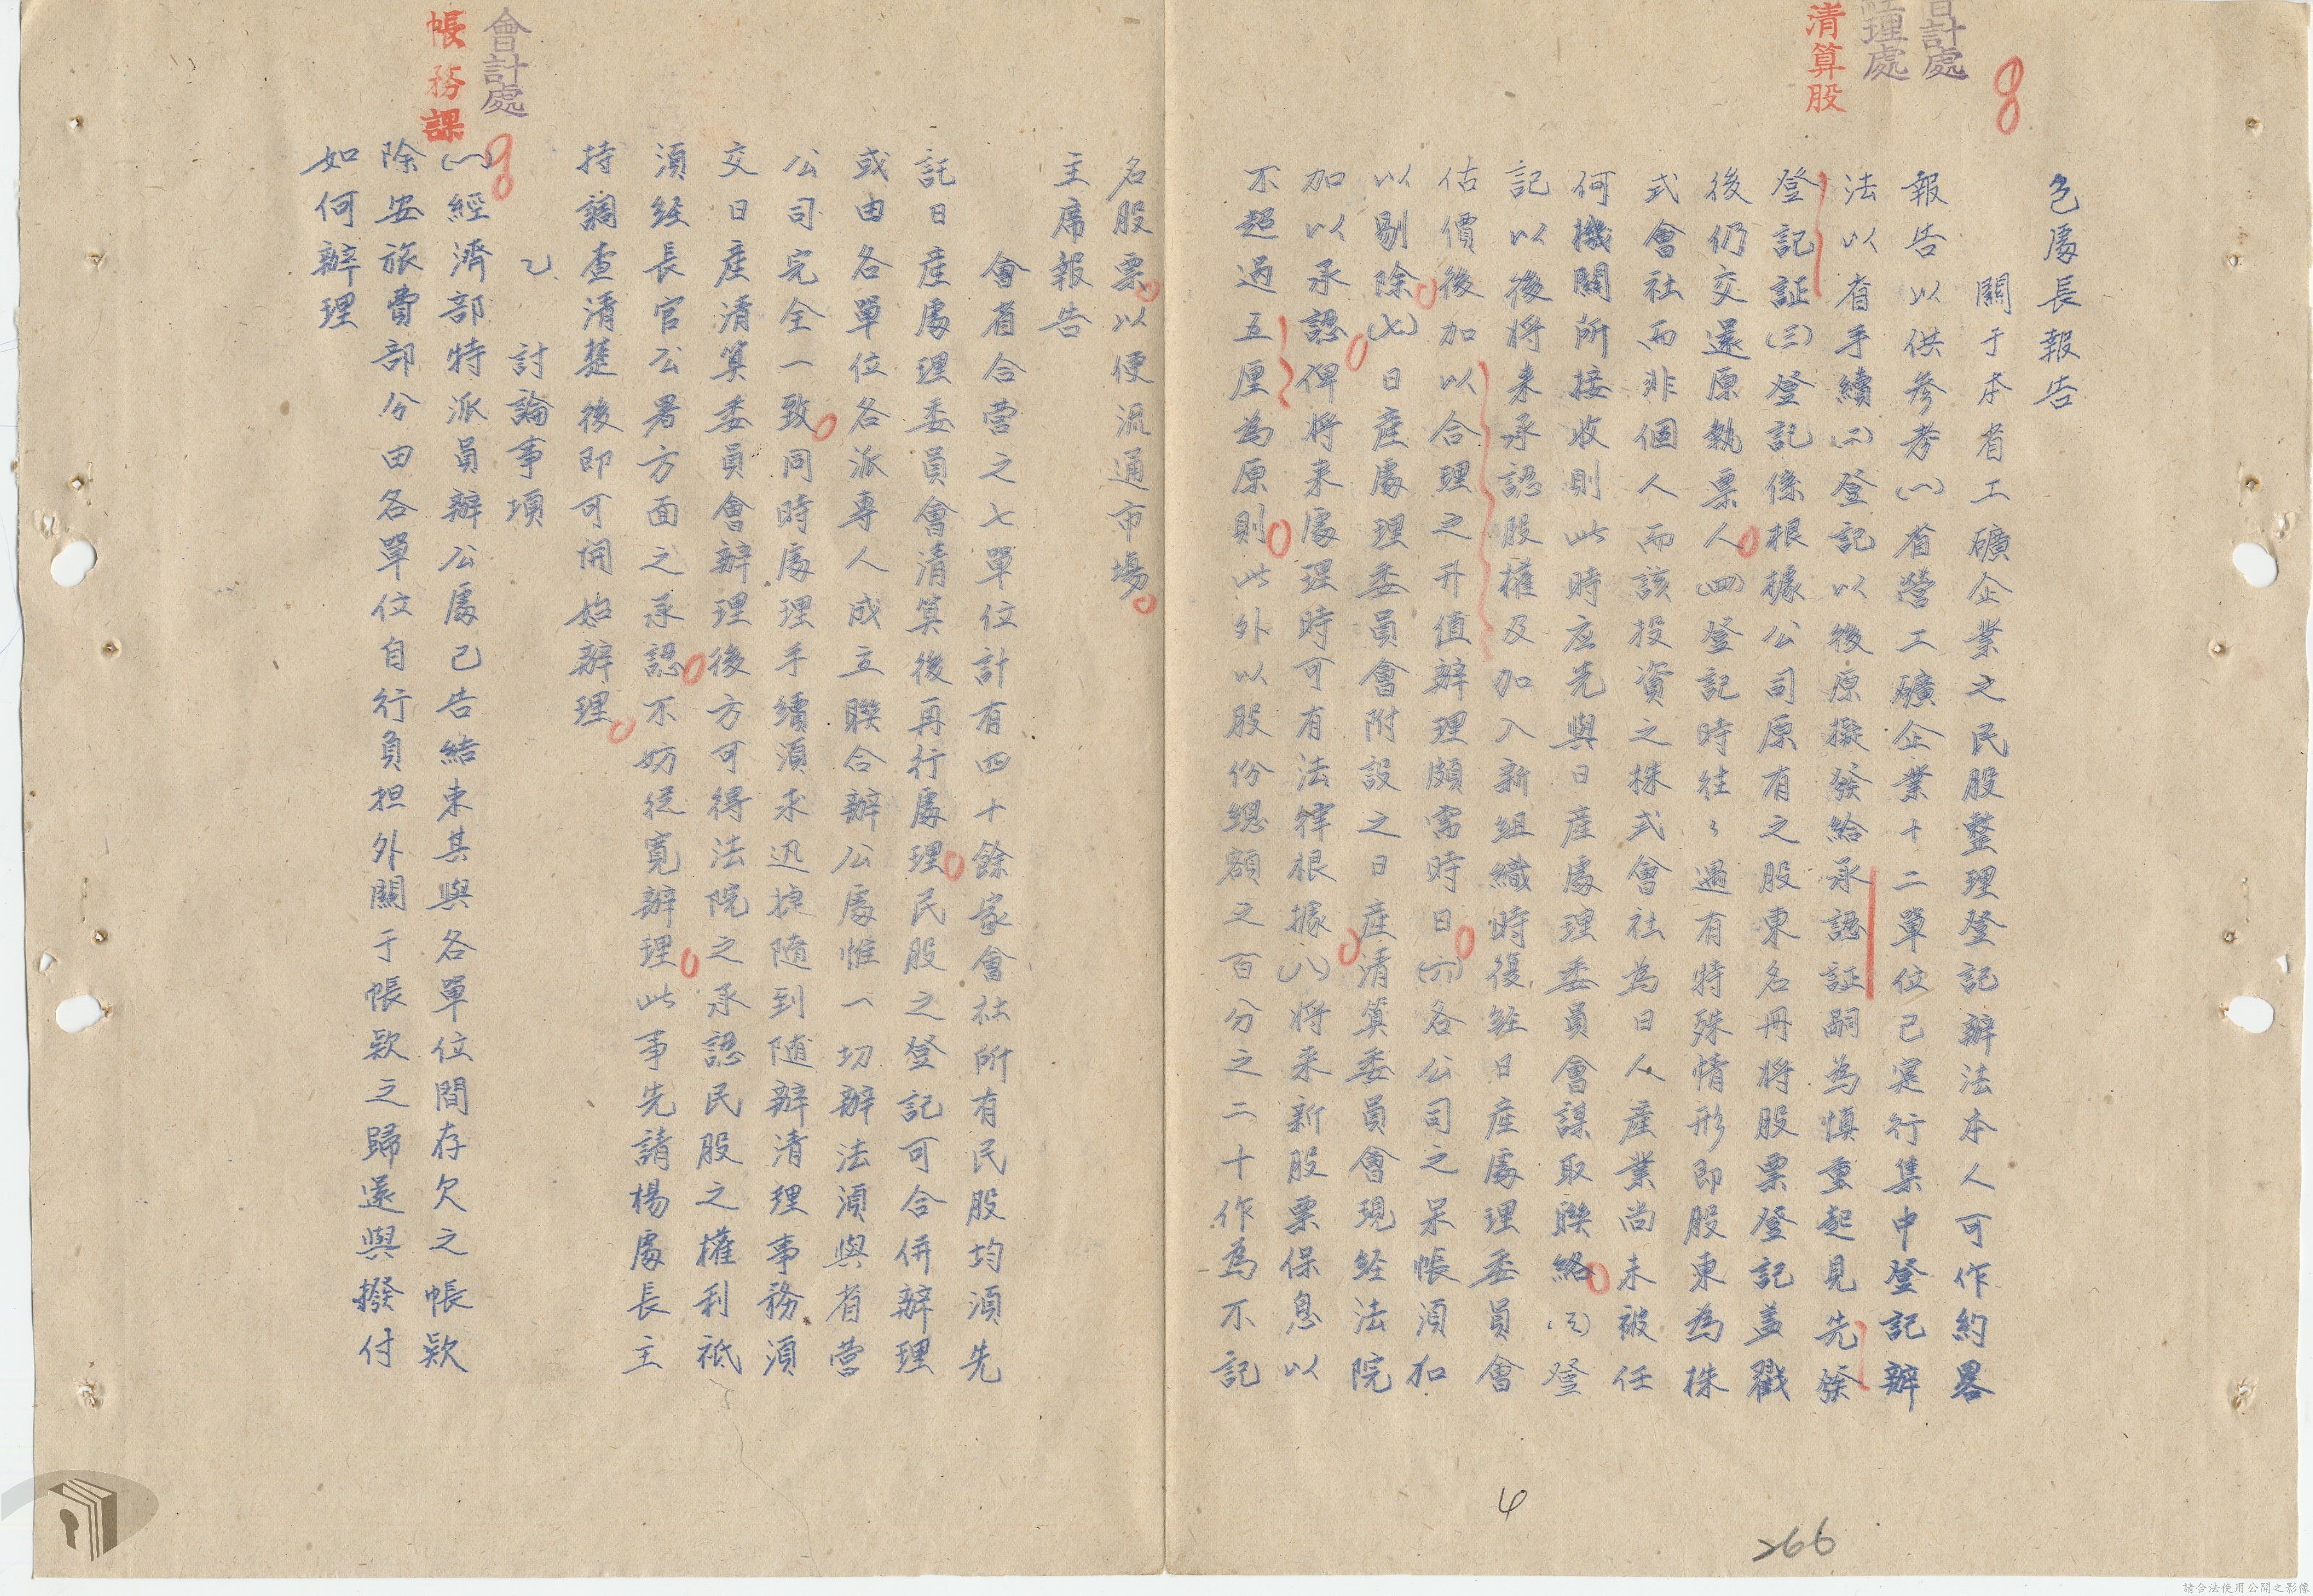 會計處
經理處
清算股
包處長報告
關于本省工礦企業之民股整理登記辦法本人可作約畧
報告以供參考(一)省營工礦企業十二單位已寔行集中登記辦
法以省手續(二)登記以後原擬發給承認証嗣為慎重起見先發
登記証(三)登記係根據公司原有之股東名冊將股票登記盖戳
後仍交還原執票人(四)登記時往々遇有特殊情形即股東為株
式會社而非個人而該投資之株式會社為日人產業尚未被任
何機關所接收則此時应先與日產處理委員會謀取聯絡(五)登
記以後將来承認股權及加入新組織時復经日產處理委員會
估價後加以合理之升值辦理頗需時日(六)各公司之呆帳須加
以剔除(七)日產處理委員會附設之日產清算委員會現经法院
加以承認俾將来處理時可有法律根據(八)將来新股票保息以
不超過五厘為原則此外以股份總額之百分之二十作為不記
名股票以便流通市場
主席報告
會省合营之七單位計有四十餘家會社所有民股均須先
託日產處理委員會清算後再行處理民股之登記可合併辦理
或由各單位各派專人成立聯合辦公處惟一切辦法須與省营
公司完全一致同時處理手續須求迅捷隨到随辦清理事務須
交日產清算委員會辦理後方可得法院之承認民股之權利祇
須经長官公署方面之承認不妨從寬辦理此事先請楊處長主
持調查清楚後即可開始辦理
會計處
帳務課
乙 討論事項
(一)經濟部特派員辦公處已告結束其與各單位間存欠之帳欵
除安旅費部分由各單位自行負担外關于帳欵之歸還與撥付
如何辦理
4
266
請合法使用公開之影像